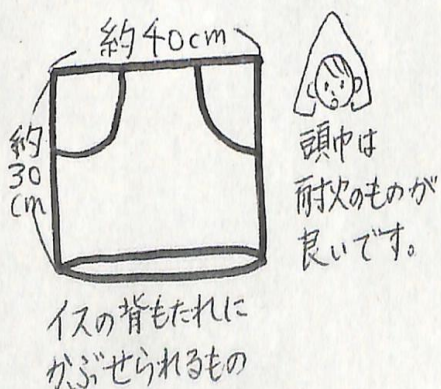 約40cm
約
30
cm
頭巾は
耐火のものが
良いです。
イスの背もたれに
かぶせられるもの